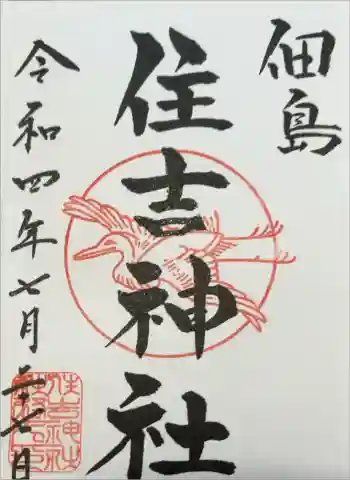 佃島
住吉神社
令和四年七月二十七日